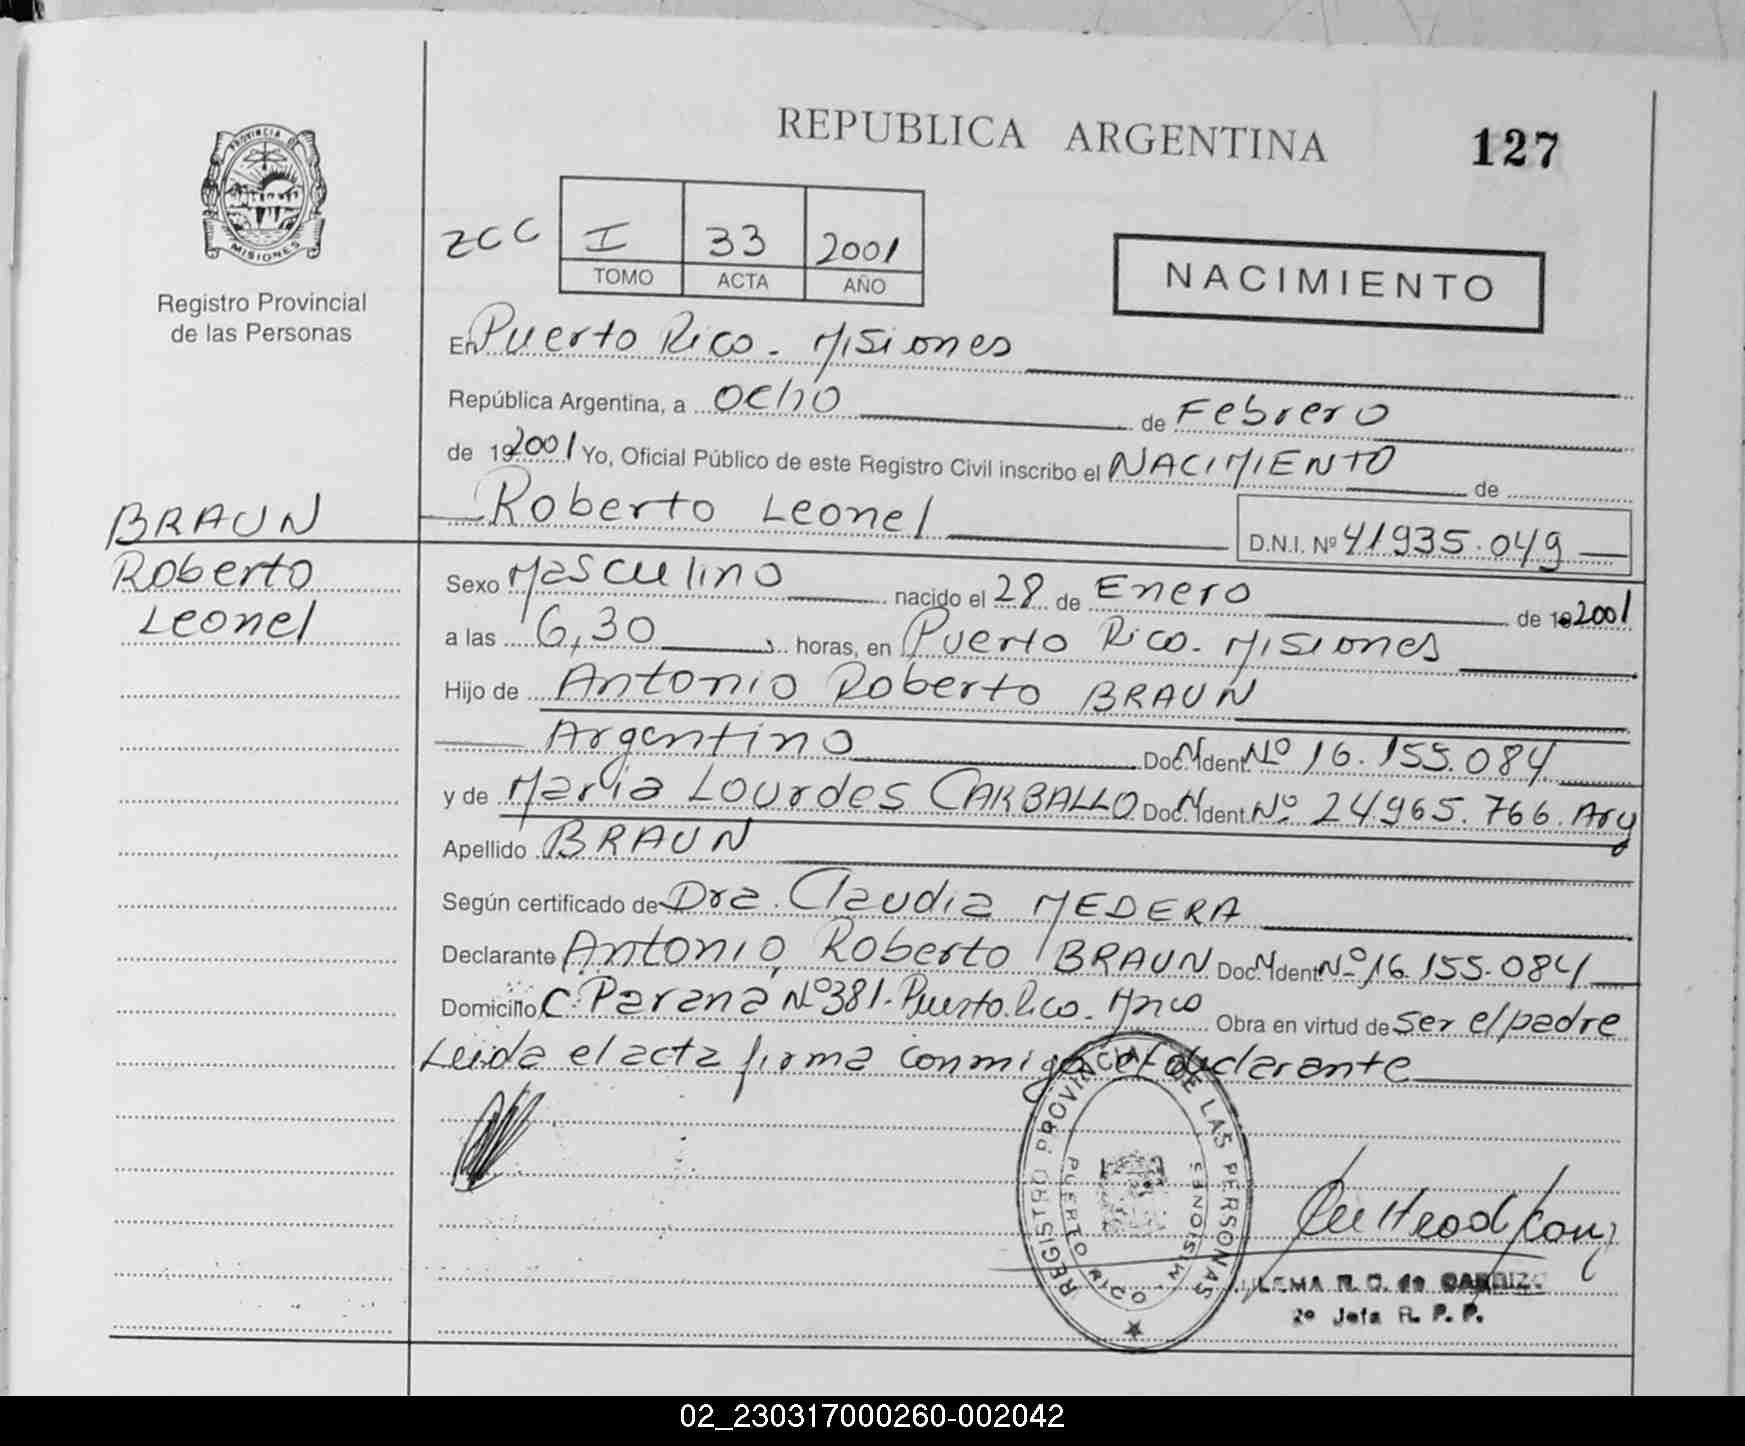 REPUBLICA ARGENTINA 127
PROVINCIA DE MISIONES
Registro Provincial
de las Personas
ZCC I 33 2001
TOMO ACTA AÑO
NACIMIENTO
En Puerto Rico - Misiones
República Argentina, a ocho de Febrero
de 19 2001 Yo, Oficial Público de este Registro Civil inscribo el NACIMIENTO de
Roberto Leonel D.N.I. Nº 41935.049
BRAUN
Roberto
Leonel
Sexo Masculino nacido el 28 de Enero de 19 2001
a las 6,30 horas, en Puerto Rico - Misiones
Hijo de Antonio Roberto BRAUN
Argentino Doc. N Ident. Nº 16.155.084
y de Maria Lourdes CARBALLO Doc. N Ident. Nº 24.965.766. Arg
Apellido BRAUN
Según certificado de Dra. Claudia MEDERA
Declarante Antonio Roberto BRAUN Doc. N Ident. Nº 16.155.084
Domicilio C. Paraná Nº 381 - Puerto Rico - Mnes Obra en virtud de ser el padre
Leida el acta firma conmigo el declarante
REGISTRO PROVINCIAL DE LAS PERSONAS
PUERTO RICO - MISIONES
R. C. de
2º Jefa R. P. P.
02_230317000260-002042